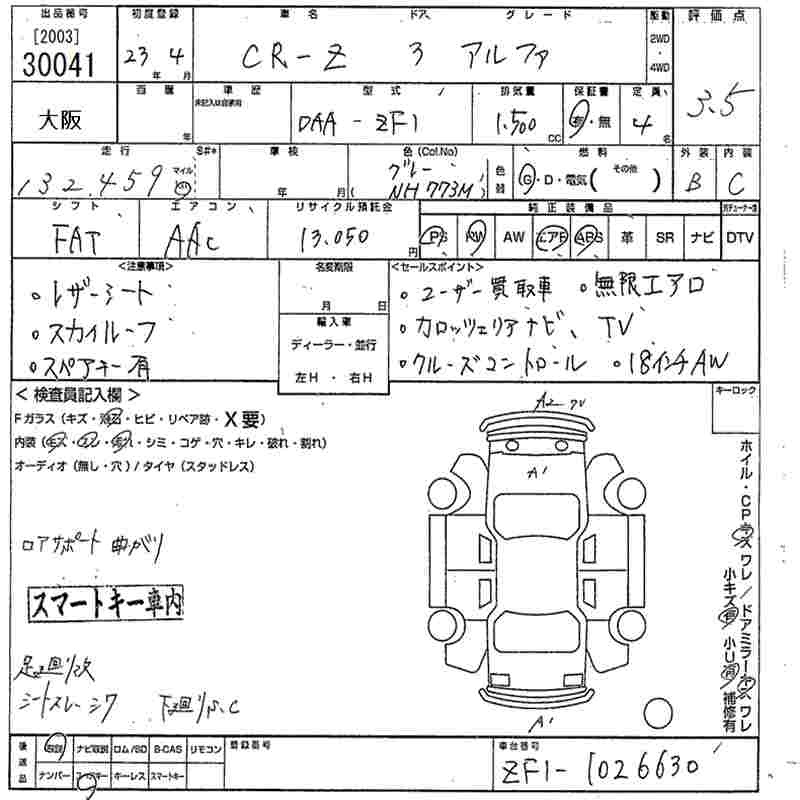 出品番号 初度登録 車名 ドア グレード 駆動 評価点
[2003]
30041 23年 4月 CR-Z 3 アルファ 2WD・4WD 3.5
大阪 百貫 年 車歴 未記入は自家用 型式 DAA-ZF1 排気量 1,500 CC 保証書 有・無 定員 4名
走行 S#* 車検 色(Col.No) 燃料 外装 内装
132,459 マイル 年 月 グレー (NH773M) 色替 G・D・電気( その他 ) B C
シフト エアコン リサイクル預託金 純正装備品
FAT AAC 13,050円 PS PW AW エアB ABS 革 SR ナビ DTV
<注意事項> 名変期限 <セールスポイント>
・レザーシート 月 日 ・ユーザー買取車 ・無限エアロ
・スカイルーフ 輸入車 ・カロッツェリアナビ、TV
・スペアキー有 ディーラー・並行 ・クルーズコントロール ・18インチAW
左H・右H
<検査員記入欄> キーロック
Fガラス(キズ・飛石・ヒビ・リペア跡・X要)
内装(キズ・スレ・汚れ・シミ・コゲ・穴・キレ・破れ・割れ)
オーディオ(無し・穴)/タイヤ(スタッドレス)
A2
A1
ホイル・CPキズ ワレ/ドアミラーキズ ワレ
小キズ有 小U有 補修有
ロアサポート 曲がり
スマートキー車内
足廻りS次
シートスレ・シワ 下廻りS,C
A1
後送品 取説 ナビ取説 ロム/SD B-CAS リモコン 登録番号 車台番号
ナンバー キーレス スマートキー ZF1-1026630